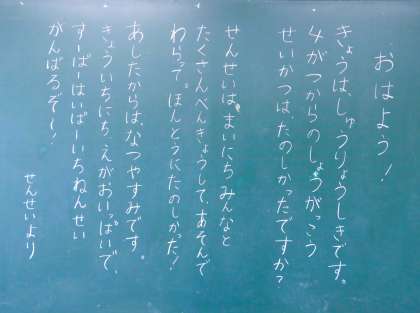 おはよう！
きょうは、しゅうりょうしきです。
4がつからのしょうがっこう
せいかつは、たのしかったですか？
せんせいは、まいにちみんなと
たくさんべんきょうして、あそんで
わらって。ほんとうにたのしかった！
あしたからは、なつやすみです。
きょういちにち、えがおいっぱいで、
すーぱーはいぱーいちねんせい
がんばるぞー！
せんせいより